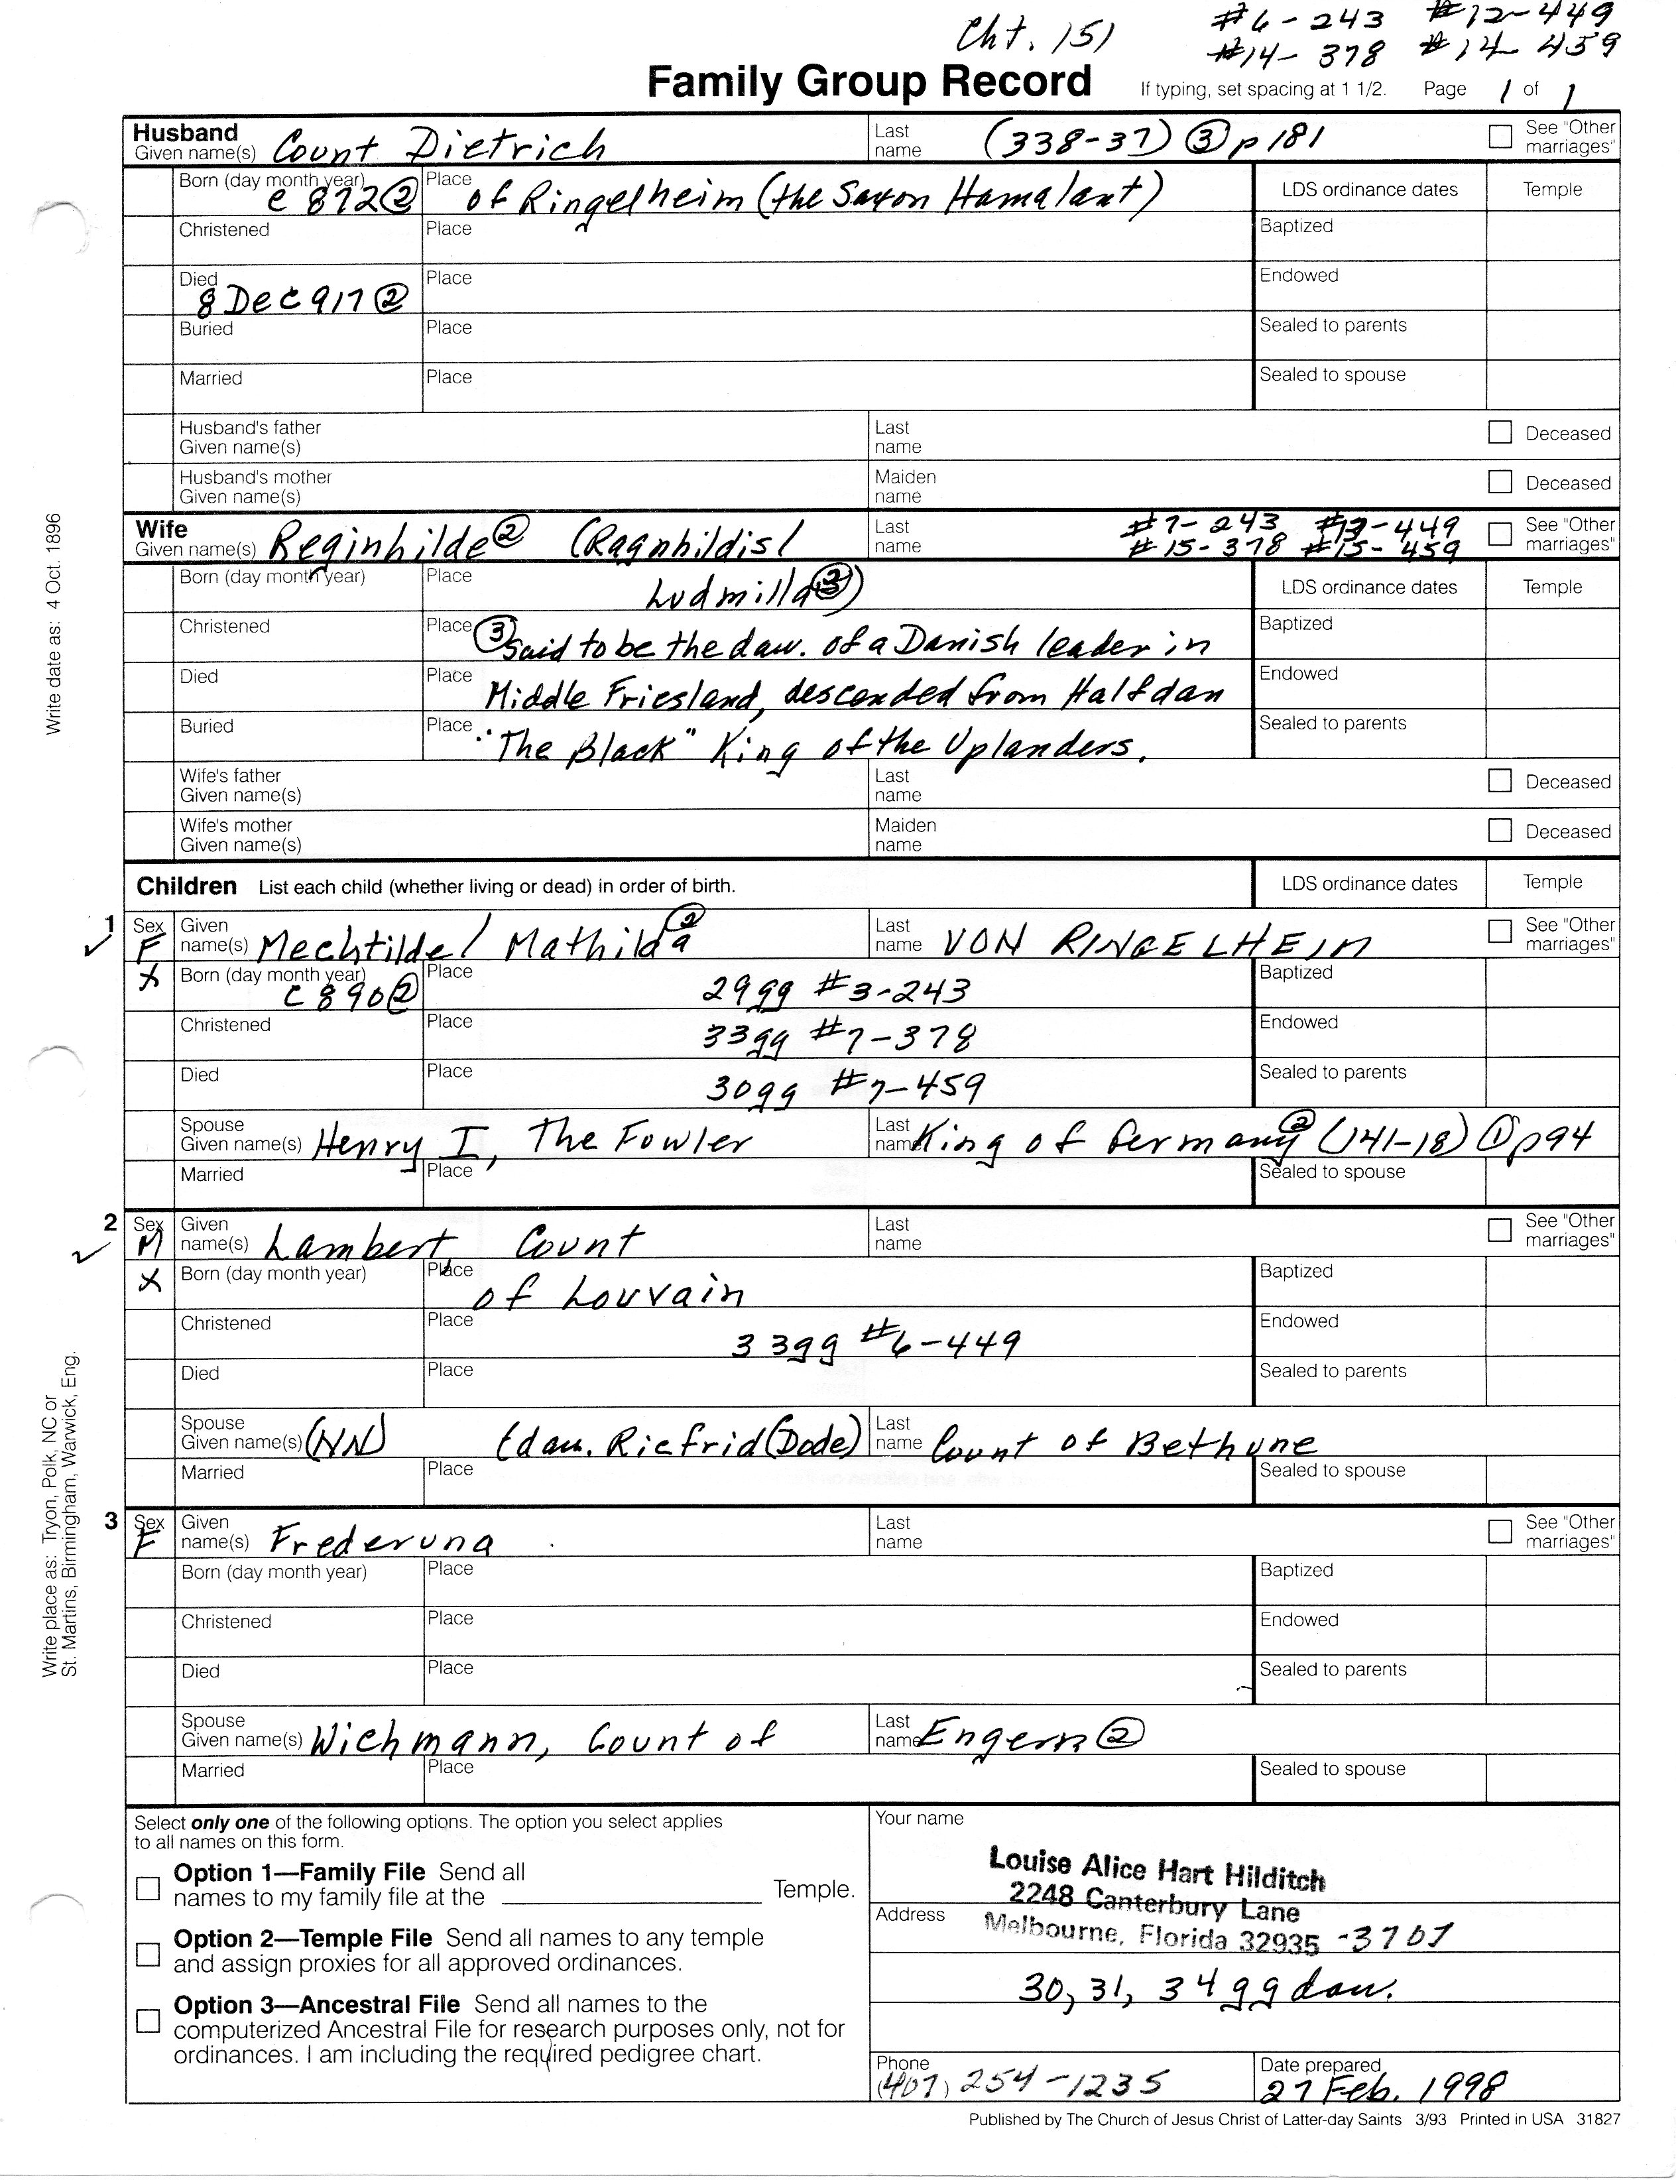 Cht. 151 #6-243 #12-449
#14-378 #14-459
Family Group Record If typing, set spacing at 1 1/2. Page 1 of 1
Husband
Given name(s) Count Dietrich Last name (338-37) ③ p 181 See "Other marriages"
Born (day month year) c 872 ② Place of Ringelheim (the Saxon Hamalant) LDS ordinance dates Temple
Christened Place Baptized
Died 8 Dec 917 ② Place Endowed
Buried Place Sealed to parents
Married Place Sealed to spouse
Husband's father Given name(s) Last name Deceased
Husband's mother Given name(s) Maiden name Deceased
Wife
Given name(s) Reginhilde ② (Ragnhildis/ Last name #7-243 #13-449 See "Other marriages"
#15-378 #15-459
Born (day month year) Place Ludmilla ③) LDS ordinance dates Temple
Christened Place ③ Said to be the dau. of a Danish leader in Baptized
Died Place Middle Friesland, descended from Halfdan Endowed
Buried Place "The Black" King of the Uplanders. Sealed to parents
Wife's father Given name(s) Last name Deceased
Wife's mother Given name(s) Maiden name Deceased
Children List each child (whether living or dead) in order of birth. LDS ordinance dates Temple
1 Sex F Given name(s) Mechtilde/ Mathilda ② Last name VON RINGELHEIM See "Other marriages"
X Born (day month year) c 890 ② Place 29gg #3-243 Baptized
Christened Place 33gg #7-378 Endowed
Died Place 30gg #7-459 Sealed to parents
Spouse Given name(s) Henry I, The Fowler Last name King of Germany ② (141-18) ① p94
Married Place Sealed to spouse
2 Sex M Given name(s) Lambert, Count Last name See "Other marriages"
X Born (day month year) Place of Louvain Baptized
Christened Place 33gg #6-449 Endowed
Died Place Sealed to parents
Spouse Given name(s) (NN) (dau. Ricfrid (Dode) Last name Count of Bethune
Married Place Sealed to spouse
3 Sex F Given name(s) Frederuna Last name See "Other marriages"
Born (day month year) Place Baptized
Christened Place Endowed
Died Place Sealed to parents
Spouse Given name(s) Wichmann, Count of Last name Engern ②
Married Place Sealed to spouse
Select only one of the following options. The option you select applies
to all names on this form.
Option 1—Family File Send all
names to my family file at the Temple.
Option 2—Temple File Send all names to any temple
and assign proxies for all approved ordinances.
Option 3—Ancestral File Send all names to the
computerized Ancestral File for research purposes only, not for
ordinances. I am including the required pedigree chart.
Your name
Louise Alice Hart Hilditch
2248 Canterbury Lane
Address
Melbourne, Florida 32935 -3707
30, 31, 34 gg dau.
Phone (407) 254-1235 Date prepared 27 Feb. 1998
Published by The Church of Jesus Christ of Latter-day Saints 3/93 Printed in USA 31827
Write date as: 4 Oct. 1896
Write place as: Tryon, Polk, NC or
St. Martins, Birmingham, Warwick, Eng.